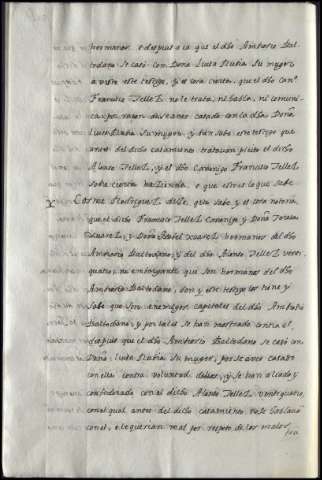 hermanos. e despues aca que el dho Ambrosio Bal
todano se casó con Doña Luisa Rubia su muger
a visto este testigo, y es cosa cierta, que el dho can.º
Francisco Tellez no le trata, ni habla, ni comuni
ca, por razon de se auer casado con la dha Doña
Luisa Rubia su muger, y aun sabe este testigo que
antes del dicho casamiento trataban pleito el dicho
Alonso Tellez, y el dho Canonigo Francisco Tellez
sobre cierta hazienda. e que esto es lo que sabe
X Cosme Rodriguez dalse, que sabe y es cosa notoria
que el dicho Francisco Tellez Canonigo y Doña Teresa
Xuarez, y Doña Isabel Xuarez hermanos del dho
Ambrosio Baltodano, y del dho Alonso Tellez vein
quatro, no embargante que son hermanos del dho
Ambrosio Baltodano, son y este testigo los tiene y
sabe que son enemigos capitales del dho Ambrosio
Baltodano, y por tales se han mostrado contra el,
despues que el dho Ambrosio Baltodano se casó con
Doña Luisa Rubia su muger, por se auer casado
con ella contra voluntad dellos, y se han aliado y
confederado con el dicho Alonso Tellez veintequatro,
con el qual antes del dicho casamiento no se hablaua
con el, e le querian mal por respeto de los malos